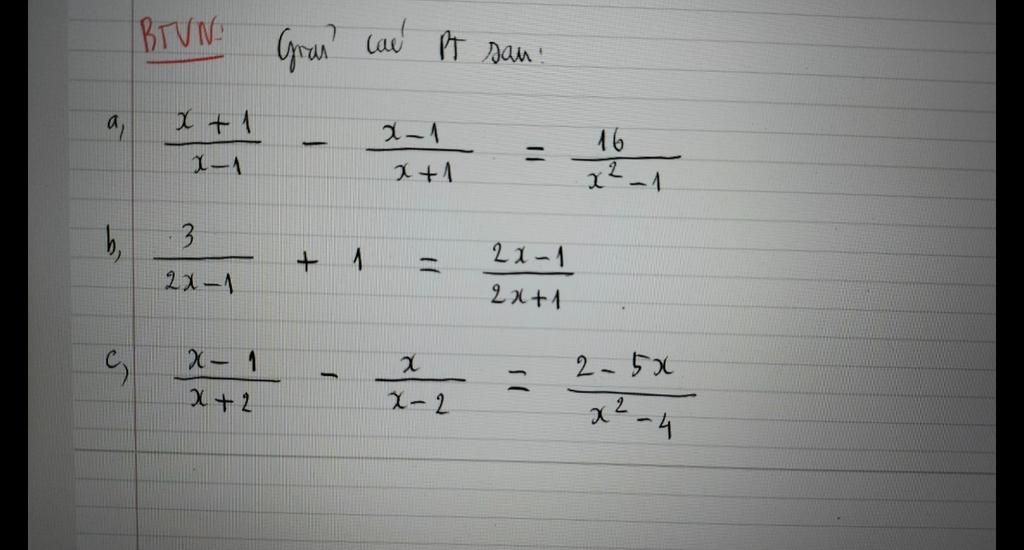 BTVN: Giải các PT sau:
a, \frac{x+1}{x-1} - \frac{x-1}{x+1} = \frac{16}{x^2-1}
b, \frac{3}{2x-1} + 1 = \frac{2x-1}{2x+1}
c, \frac{x-1}{x+2} - \frac{x}{x-2} = \frac{2-5x}{x^2-4}